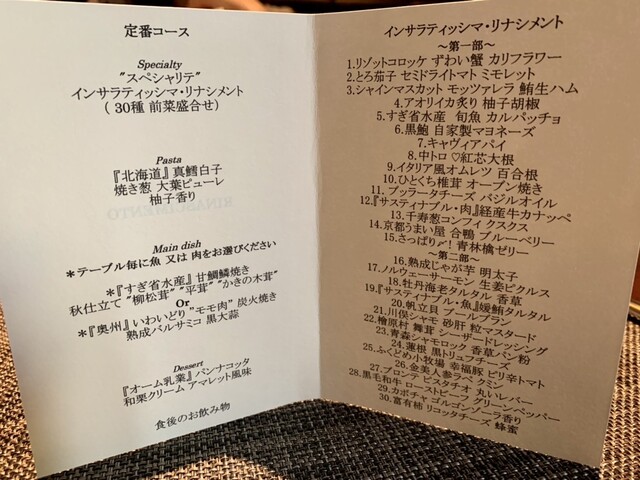 定番コース
Specialty
"スペシャリテ"
インサラティッシマ・リナシメント
( 30種 前菜盛合せ)
Pasta
『北海道』真鱈白子
焼き葱 大葉ピューレ
柚子香り
Main dish
＊テーブル毎に魚 又は 肉をお選びください
＊『すぎ省水産』甘鯛鱗焼き
秋仕立て "柳松茸" "平茸" "かきの木茸"
Or
＊『奥州』いわいどり "モモ肉" 炭火焼き
熟成バルサミコ 黒大蒜
Dessert
『オーム乳業』パンナコッタ
和栗クリーム アマレット風味
食後のお飲み物
インサラティッシマ・リナシメント
～第一部～
1.リゾットコロッケ ずわい蟹 カリフラワー
2.とろ茄子 セミドライトマト ミモレット
3.シャインマスカット モッツァレラ 鮪生ハム
4.アオリイカ炙り 柚子胡椒
5.すぎ省水産 旬魚 カルパッチョ
6.黒鮑 自家製マヨネーズ
7.キャヴィアパイ
8.中トロ ♡紅芯大根
9.イタリア風オムレツ 百合根
10.ひとくち椎茸 オーブン焼き
11. ブッラータチーズ バジルオイル
12.『サスティナブル・肉』経産牛カナッペ
13.千寿葱コンフィ クスクス
14.京都うまい屋 合鴨 ブルーベリー
15.さっぱり〆! 青林檎ゼリー
～第二部～
16.熟成じゃが芋 明太子
17.ノルウェーサーモン 生姜ピクルス
18.牡丹海老タルタル 香草
19.『サスティナブル・魚』媛鮪タルタル
20.帆立貝 ブールブラン
21.川俣シャモ 砂肝 粒マスタード
22.檜原村 舞茸 シーザードレッシング
23.青森シャモロック 香草パン粉
24.蓮根 黒トリュフチーズ
25.ふくどめ小牧場 幸福豚 ピリ辛トマト
26.金美人参ラペ クミン
27.ブロンテ ピスタチオ 丸いレバー
28.黒毛和牛 ローストビーフ グリーンペッパー
29.カボチャ ゴルゴンゾーラ香り
30.富有柿 リコッタチーズ 蜂蜜